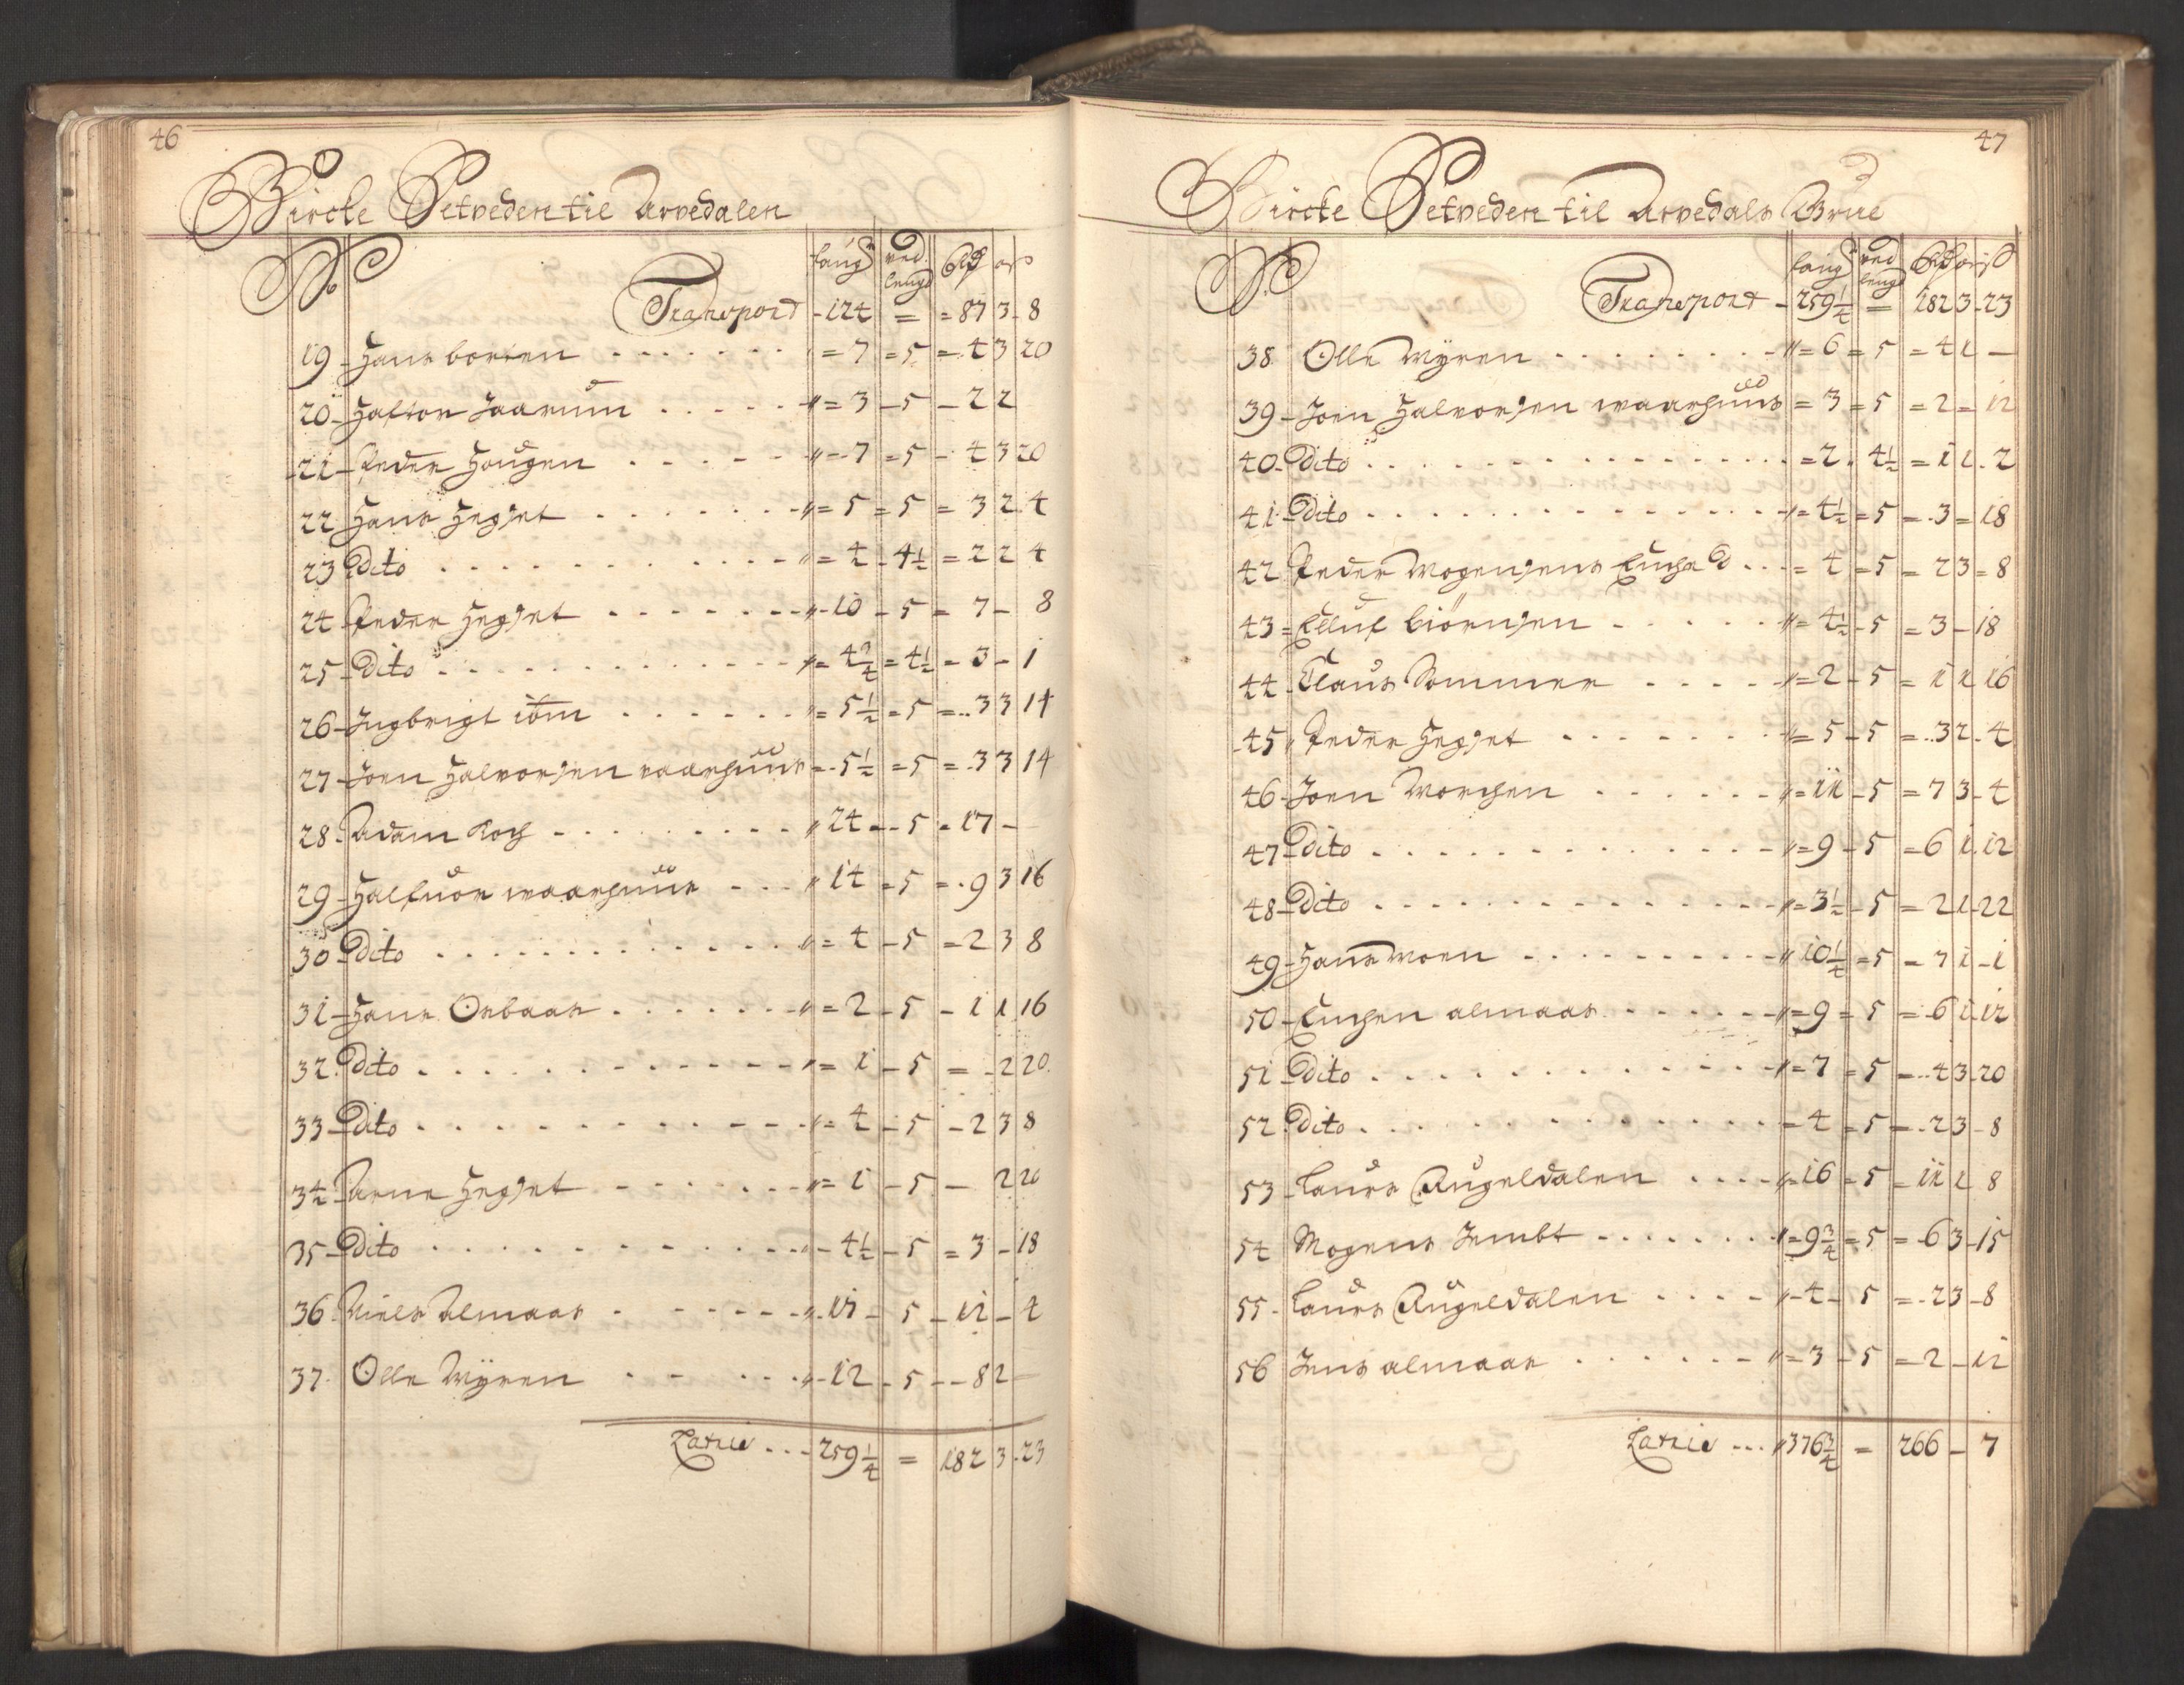 46
Bircke Setveden til Arvedalen
No faug ved lengd Rdr ort s
Transport - 124 = = 87 3 - 8
19 - Hans borten . . . . . . . = 7 = 5 = 4 3 20
20 - Halvor Aarum . . . . . = 3 - 5 - 2 2
21 - Peder Hougen . . . . . . = 7 = 5 - 4 3 20
22 Hans Hegset . . . . . . . = 5 = 5 = 3 2 4
23 Dito . . . . . . . . . . . = 4 - 4½ = 2 2 4
24 Peder Hegset . . . . . . . 10 - 5 = 7 - 8
25 - Dito . . . . . . . . . . . = 4¾ = 4½ = 3 - 1
26 - Ingbrigt . . . . . . = 5½ = 5 = 3 3 14
27 - Joen Halvorsen vaarhuus = 5½ = 5 = 3 3 14
28 - Adam Koch . . . . . . . . . 24 - 5 = 17 -
29 - Halfuor waarhuus . . . 14 = 5 = 9 3 16
30 Dito . . . . . . . . . . . = 4 - 5 = 2 3 8
31 - Hans Orbaas . . . . . . . = 2 - 5 - 1 1 16
32 Dito . . . . . . . . . . . = 1 - 5 = - 2 20
33 - Dito . . . . . . . . . . . = 4 - 5 - 2 3 8
34 - Arne Hegset . . . . . . . = 1 - 5 - 2 20
35 - Dito . . . . . . . . . . . - 4½ - 5 = 3 - 18
36 Niels Almaas . . . . . . 17 - 5 - 12 - 4
37 Olle Myren . . . . . . 12 - 5 - 8 2
Latris . . . 259¼ = 182 3 - 23
47
Bircke Setveden til Arvedals Brue
No faug ved lengd Rdr ort s
Transport - 259¼ = 182 3 - 23
38 Olle Myren . . . . . . . . . = 6 = 5 = 4 1 -
39 - Joen Halvorsen waarhuus = 3 = 5 = 2 = 12
40 - Dito . . . . . . . . . . . = 2 . 4½ = 1 1 . 2
41 - Dito . . . . . . . . . . . = 4½ = 5 = 3 = 18
42 Peder Mogensens Enche . . . = 4 = 5 = 2 3 = 8
43 = Elluf Biörnsen . . . . . . = 4½ - 5 = 3 - 18
44 - Claus Sommer . . . . . = 2 - 5 = 1 1 16
45 Peder Hegset . . . . . . . = 5 - 5 = 3 2 - 4
46 - Joen Morchen . . . . . . = 11 - 5 = 7 3 - 4
47 - Dito . . . . . . . . . . . = 9 - 5 = 6 1 12
48 - Dito . . . . . . . . . . . = 3½ - 5 = 2 1 - 22
49 - Hans Moen . . . . . . . . . 10¼ = 5 - 7 1 - 1
50 - Enchen almaas . . . . . . = 9 = 5 = 6 1 - 12
51 - Dito . . . . . . . . . . . = 7 = 5 = 4 3 - 20
52 Dito . . . . . . . . . . . = 4 = 5 = 2 3 - 8
53 - Laurs Rugeldalen . . . . = 16 = 5 - 11 1 8
54 Mogens Irmbt . . . . . . . = 9¾ = 5 = 6 3 - 15
55 - Laurs Rugeldalen . . . . - 4 - 5 = 2 3 - 8
56 Jens almaas . . . . . . . = 3 - 5 = 2 - 12
Latris . . . 376¾ = 266 - 7